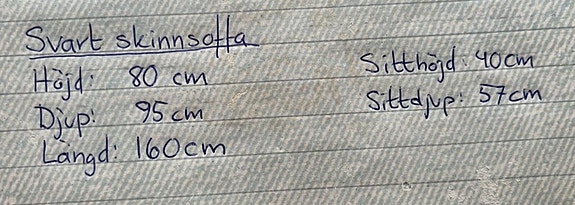 Svart skinnsoffa
Höjd: 80 cm
Djup: 95cm
Längd: 160cm
Sitthöjd: 40cm
Sittdjup: 57cm